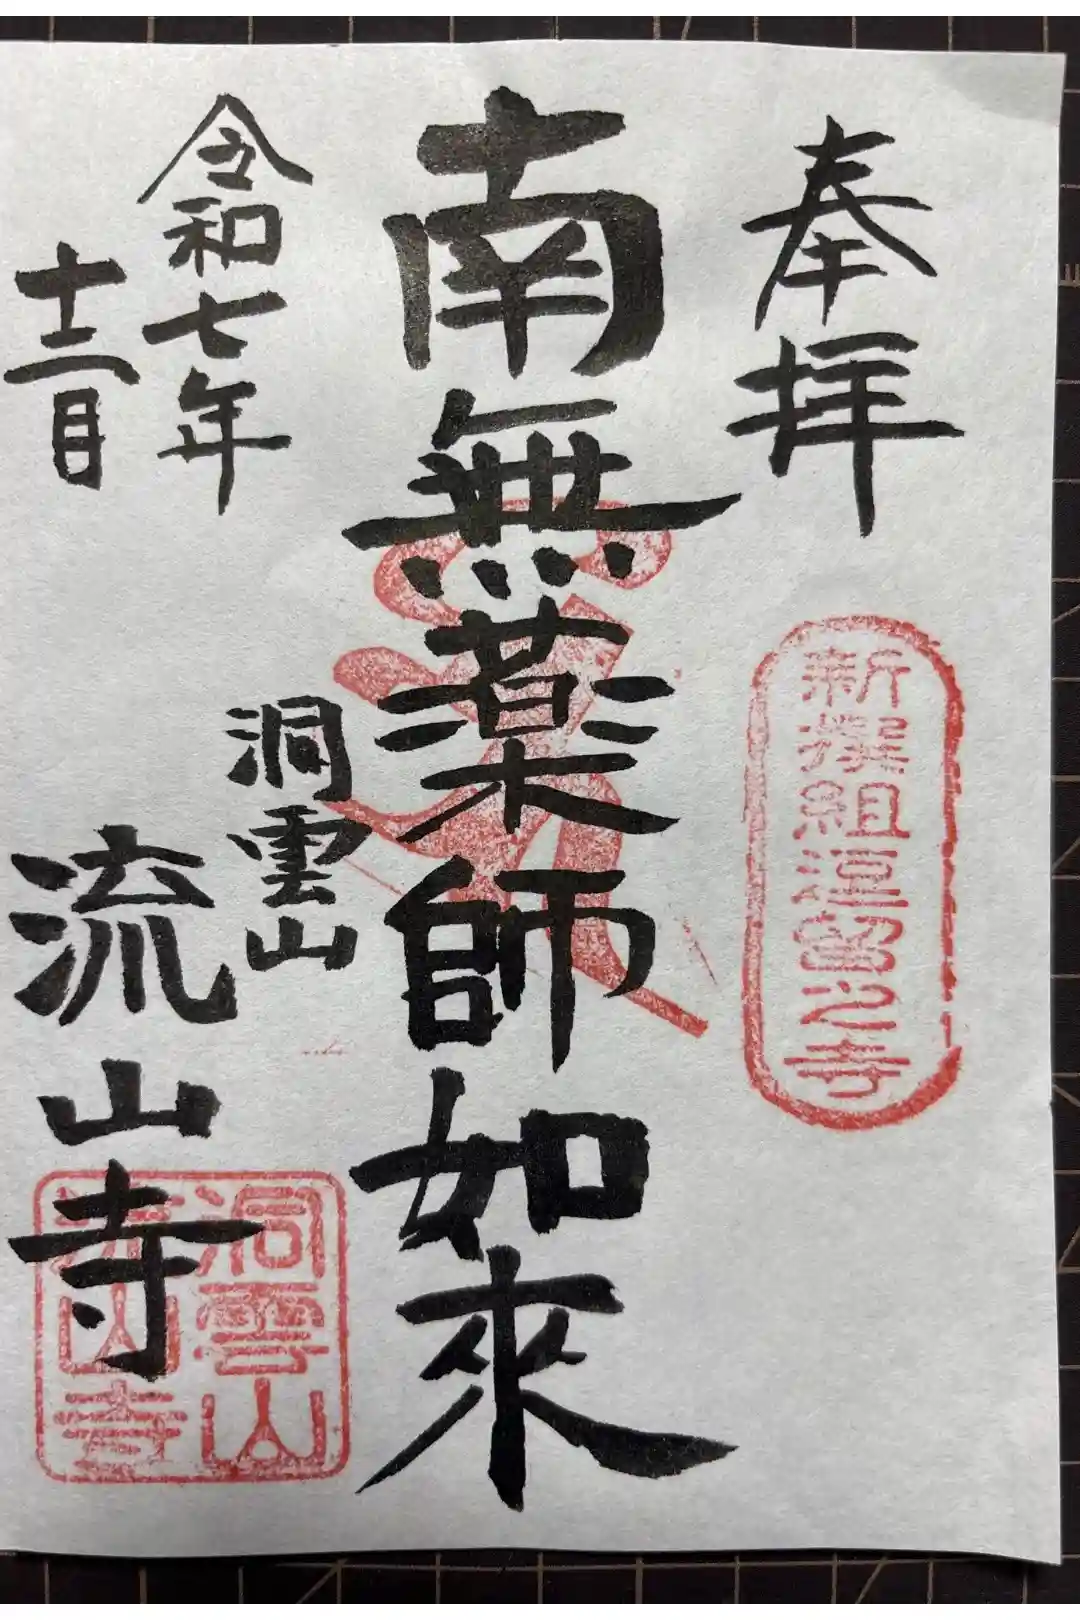 奉拝
新撰組逗留之寺
南無薬師如來
洞雲山
令和七年
十二月 日
流山寺
洞雲山
流山寺